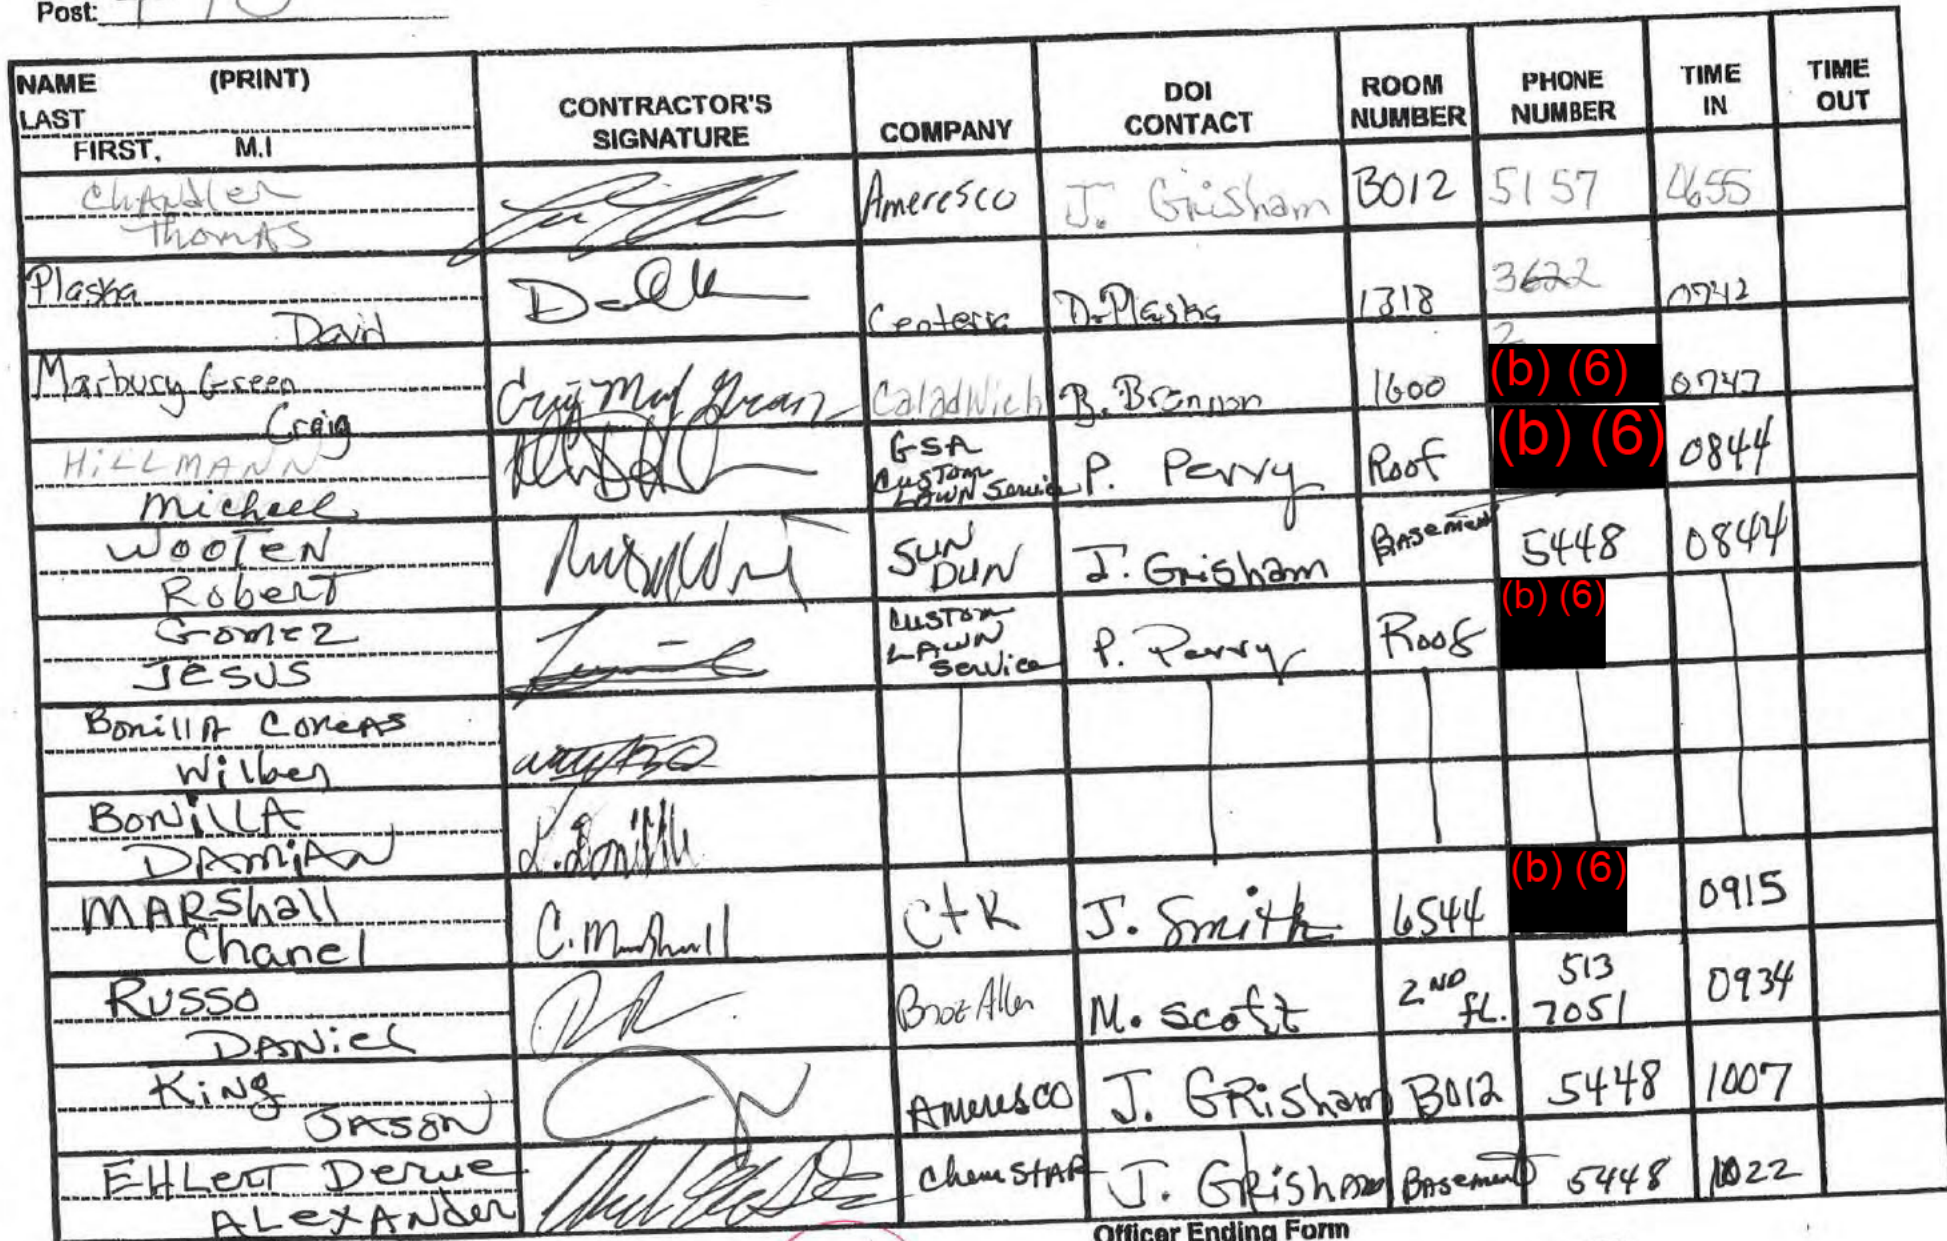 Post:
NAME (PRINT) LAST FIRST, M.I CONTRACTOR'S SIGNATURE COMPANY DOI CONTACT ROOM NUMBER PHONE NUMBER TIME IN TIME OUT
Chandler Thomas Ameresco J. Grisham B012 5157 0655
Plaska David Centerra D. Plaska 1318 3622 0742
Marbury Green Craig B. Brennon 1600 (b) (6) 0747
HILLMANN Michael GSA CUSTOM LAWN Service P. Perry Roof (b) (6) 0844
WOOTEN Robert SUN DUN J. Grisham Basement 5448 0844
Gomez JESUS CUSTOM LAWN Service P. Perry Roof (b) (6)
Bonilla Coreas Wilber
BONILLA DAMIAN
MARShall Chanel C. Marshall C+K J. Smith 6544 (b) (6) 0915
RUSSO DANiel M. Scott 2ND fL. 513 7051 0934
King JASON Ameresco J. GRisham B012 5448 1007
EHLert Derue ALexANder ChemSTAR J. GRisham Basement 5448 1022
Officer Ending Form